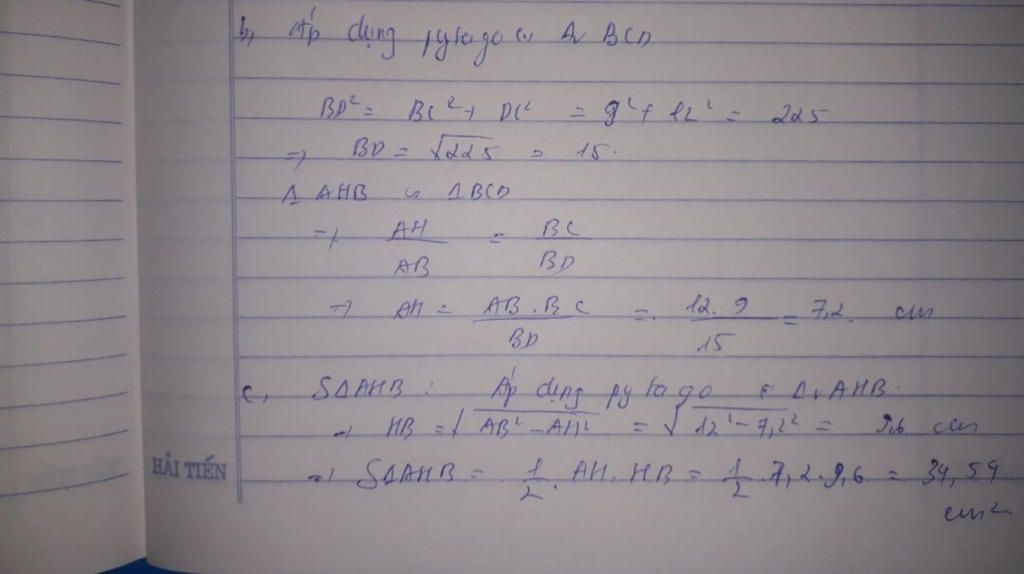 b, Áp dụng pytago Δv BCD
BD² = BC² + DC² = 9² + 12² = 225
=> BD = √225 = 15.
Δ AHB ∽ Δ BCD
=> AH/AB = BC/BD
=> AH = AB.BC/BD = 12.9/15 = 7,2. cm
c, SΔAHB : Áp dụng pytago Δv AHB.
=> HB = √AB² - AH² = √12² - 7,2² = 9,6 cm
=> SΔAHB = 1/2. AH. HB = 1/2. 7,2. 9,6 = 34,54
cm²
HẢI TIẾN